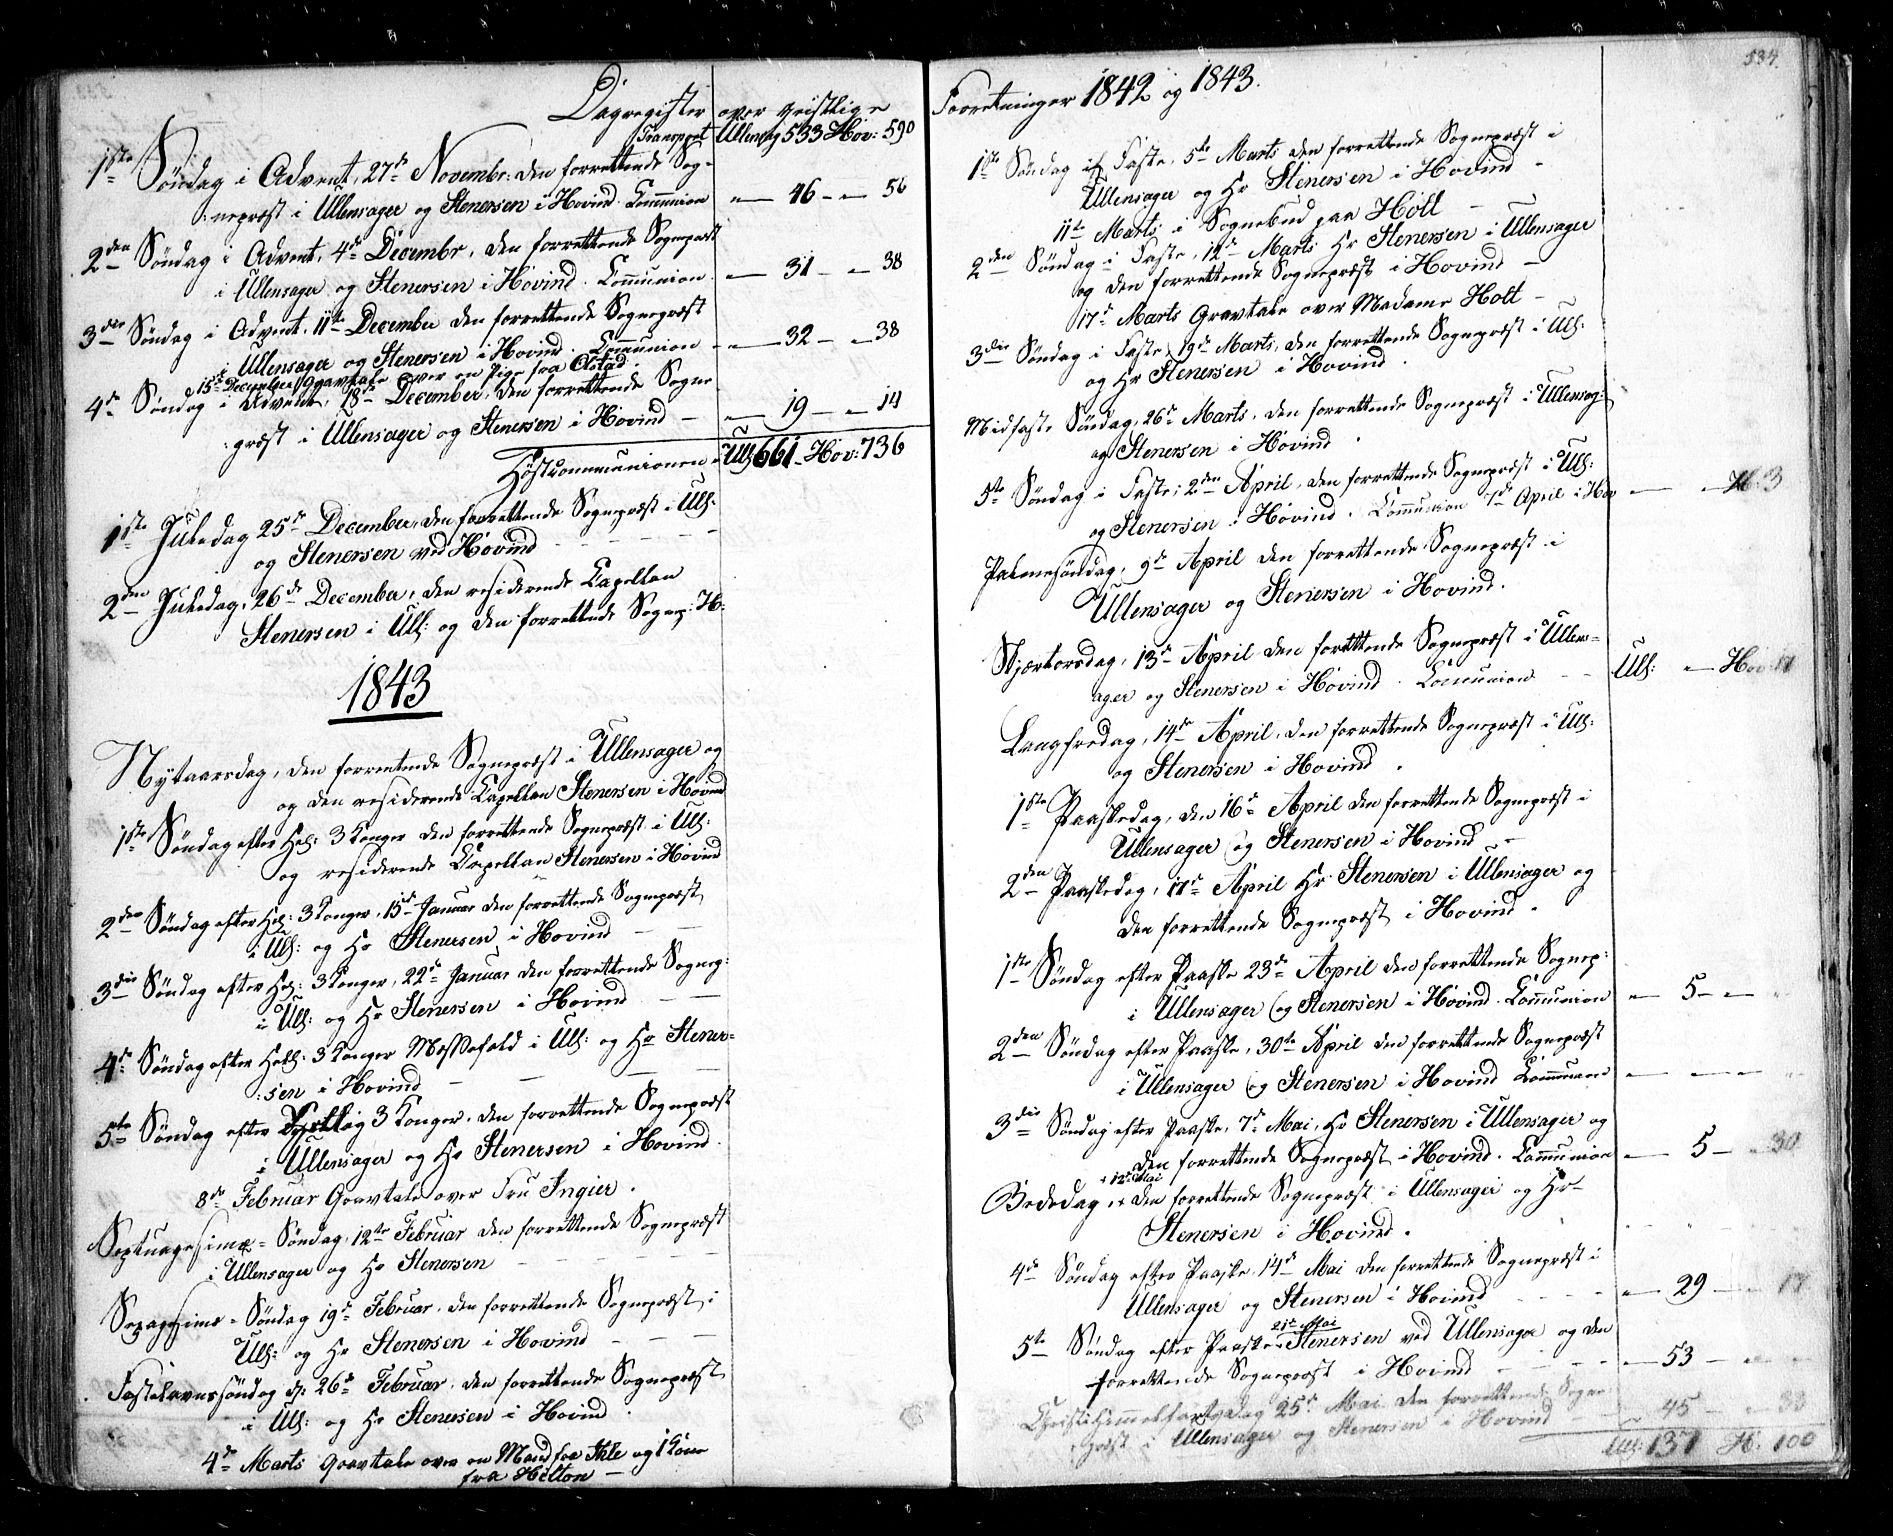 Dagregister over geistlige
Transport Ullensag 533 Hov: 590
1ste Søndag i Advent, 27de Novembr: den forrettende Sog-
:nepræst i Ullensager og Stenersen i Hovind. Communion — 46 — 56
2den Søndag i Advent, 4de Decembr, den forrettende Sognepræst
i Ullensager og Stenersen i Hovind. Communion. — 31 — 38
3die Søndag i Advent, 11te December den forrettende Sognepræst
i Ullensager og Stenersen i Hovind. Communion — 32 — 38
15de December Gravtale over en Pige fra Alstad.
4de Søndag i Advent, 18de December, den forrettende Sogne
:præst i Ullensager og Stenersen i Hovind — 19 — 14
Høstcommunionen Ull: 661 - Hov: 736
1ste Juledag 25de December, den forrettende Sognepræst i Ull:
og Stenersen ved Hovind
2den Juledag, 26de December, den residerende Capellan
Stenersen i Ull: og den forrettende Sognep: H:
1843
Nytaarsdag, den forrettende Sognepræst i Ullensager og
og den residerende Capellan Stenersen i Hovind
1ste Søndag efter Hel: 3 Konger den forrettende Sognepræst i Ull:
og residerende Capellan Stenersen i Hovind
2den Søndag efter Hel: 3 Konger, 15de Januar den forrettende Sognepræst
i Ull: og Hr Stenersen i Hovind
3die Søndag efter Hel: 3 Konger, 22de Januar den forrettende Sognep:
i Ull: og Hr Stenersen i Hovind
4de Søndag efter Hell: 3 Konger Messefald i Ull: og Hr Stener-
:sen i Hovind
5te Søndag efter 3 Konger, den forrettende Sognepræst
i Ullensager og Hr Stenersen i Hovind.
8de Februar Gravtale over Fru Ingier.
Septuagesimæ - Søndag, 12te Februar den forrettende Sognepræst
i Ullensager og Hr Stenersen
Sexagesimæ - Søndag 19de Februar, den forrettende Sognepræst i
Ull: og Hr Stenersen i Hovind
Fastelavnssøndag d: 26de Februar, den forrettende Sognepræst
i Ull: og Hr Stenersen i Hovind.
4de Marts Gravtale over en Mand fra og 1 Kone
fra Hilton
534.
Forretninger 1842 og 1843.
1ste Søndag i Faste, 5te Marts den forrettende Sognepræst i
Ullensager og Hr Stenersen i Hovind
11te Marts i Sognebud paa Holt
2den Søndag i Faste, 12te Marts Hr Stenersen i Ullensager
og den forrettende Sognepræst i Hovind
17de Marts Gravtale over Madame Holt
3die Søndag i Faste, 19de Marts, den forrettende Sognepræst i Ull:
og Hr Stenersen i Hovind.
Midfaste Søndag, 26de Marts, den forrettende Sognepræst i Ullensag:
og Stenersen i Hovind.
5te Søndag i Faste, 2den April, den forrettende Sognepræst i Ull:
og Stenersen i Hovind. Communion 7de April i Hov — H: 3
Palmesøndag, 9de April den forrettende Sognepræst i
Ullensager og Stenersen i Hovind.
Skjærtorsdag, 13de April den forrettende Sognepræst i Ullens-
ager og Stenersen i Hovind. Communion Ull: — Hov:
Langfredag, 14de April, den forrettende Sognepræst i Ull:
og Stenersen i Hovind.
1ste Paaskedag, den 16de April den forrettende Sognepræst i
Ullensager og Stenersen i Hovind
2den Paaskedag, 17de April Hr Stenersen i Ullensager og
den forrettende Sognepræst i Hovind.
1ste Søndag efter Paaske 23de April den forrettende Sognep:
i Ullensager og Stenersen i Hovind. Communion — 5 —
2den Søndag efter Paaske, 30te April den forrettende Sognepræst
i Ullensager og Stenersen i Hovind Communion
3die Søndag efter Paaske, 7de Mai, Hr Stenersen i Ullensager og
den forrettende Sognepræst i Hovind. Communion — 5 — 30
12te Mai
Bededag, den forrettende Sognepræst i Ullensager og Hr
Stenersen i Hovind.
4de Søndag efter Paaske, 14de Mai den forrettende Sognepræst i
Ullensager og Stenersen i Hovind — 29 — 17
21de Mai
5te Søndag efter Paaske Stenersen ved Ullensager og den
forrettende Sognepræst i Hovind — 53 —
Christi Himmelfartsdag 25de Mai den forrettende Sogne-
:præst i Ullensager og Stenersen i Hovind — 45 — 33
Ull: 137 H. 100